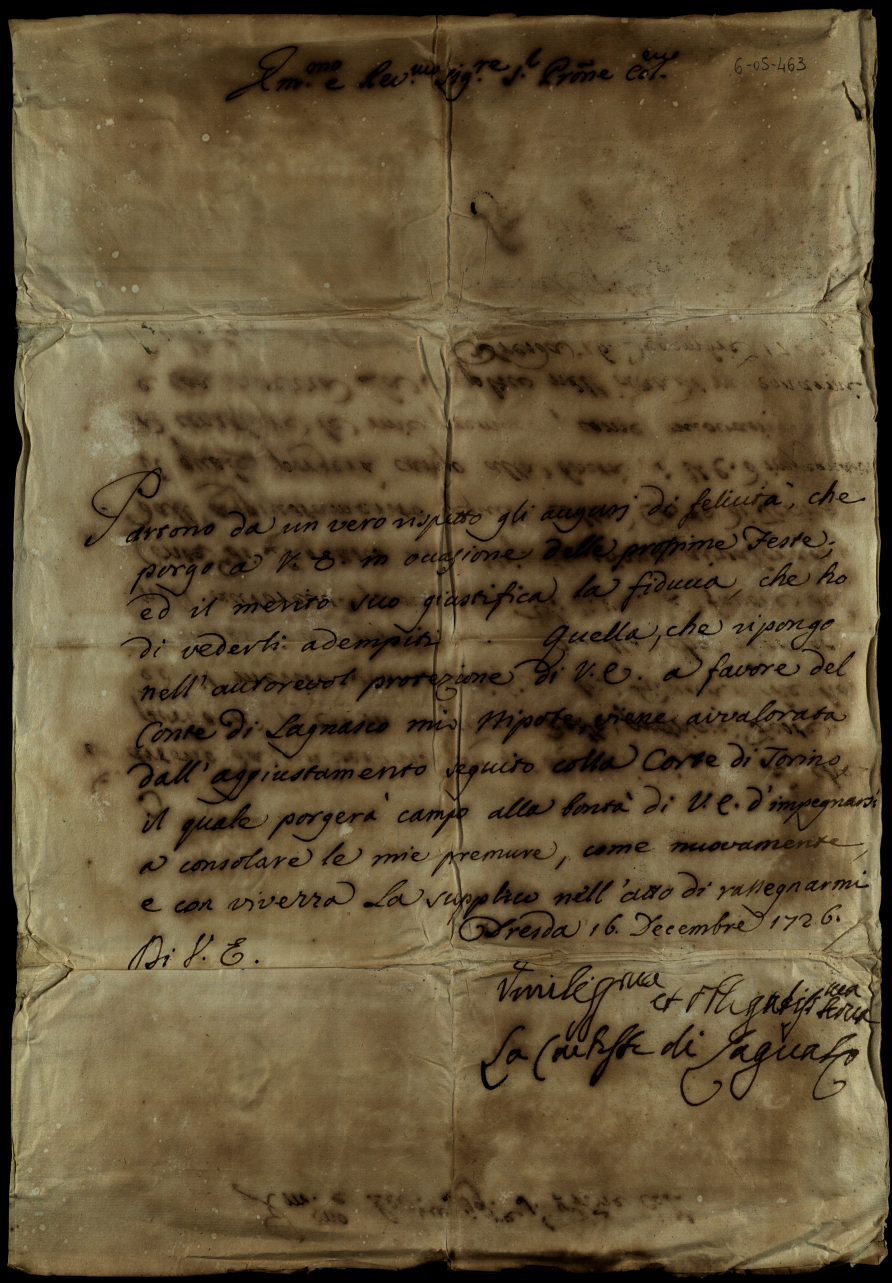 Em.mo e Rev.mo Sig.re S.r Prõne Col.mo
6-05-463
Partono da un vero rispetto gli augurj di felicità, che
porgo a V. E. in occasione delle prossime Feste;
ed il merito suo giustifica la fiducia, che ho
di vederli adempiti. Quella, che ripongo
nell'autorevol protezione di V. E. a favore del
Conte di Lagnasco mio Nipote, viene avvalorata
dall'aggiustamento seguito colla Corte di Torino,
il quale porgerà campo alla bontà di V. E. d'impegnarsi
a consolare le mie premure, come nuovamente,
e con vivezza La supplico nell'atto di rassegnarmi
Dresda 16. Decembre 1726.
Di V. E.
et
La Contessa di Lagnasco